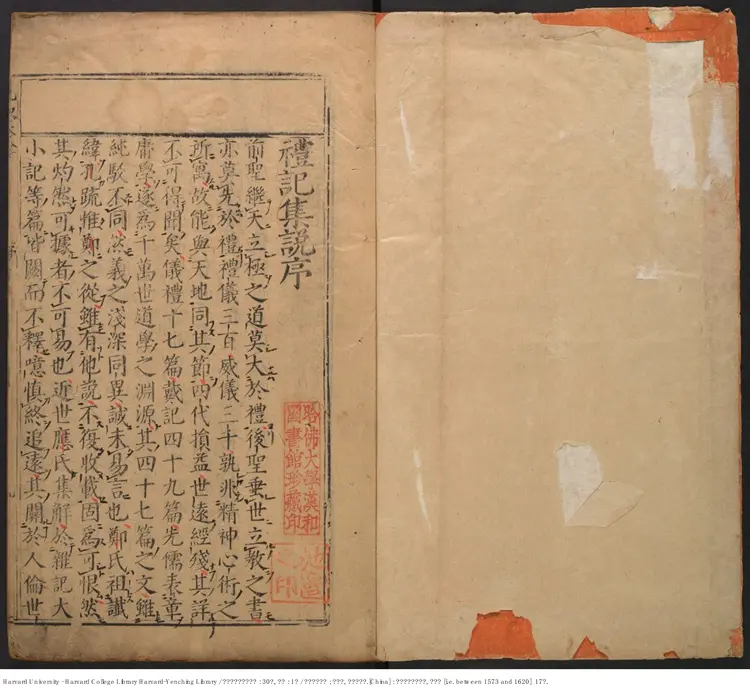 禮記集說序
前聖繼天立極之道莫大於禮後聖垂世立敎之書
亦莫先於禮禮儀三百威儀三千孰非精神心術之
所寓故能與天地同其節四代損益世遠經殘其詳
不可得聞矣儀禮十七篇戴記四十九篇先儒表章
庸學遂為千萬世道學之淵源其四十七篇之文雖
純駁不同然義之淺深同異誠未易言也鄭氏祖讖
緯孔疏惟鄭之從雖有他說不復收載固為可恨然
其灼然可據者不可易也近世應氏集解於雜記大
小記等篇皆闕而不釋噫慎終追遠其關於人倫世
哈佛大學漢和
圖書館珍藏印
Harvard University - Harvard College Library Harvard-Yenching Library / ????????? : 30?, ?? : 1? / ?????? ; ???, ?????. [China] : ????????, ??? [i.e. between 1573 and 1620] 17?.